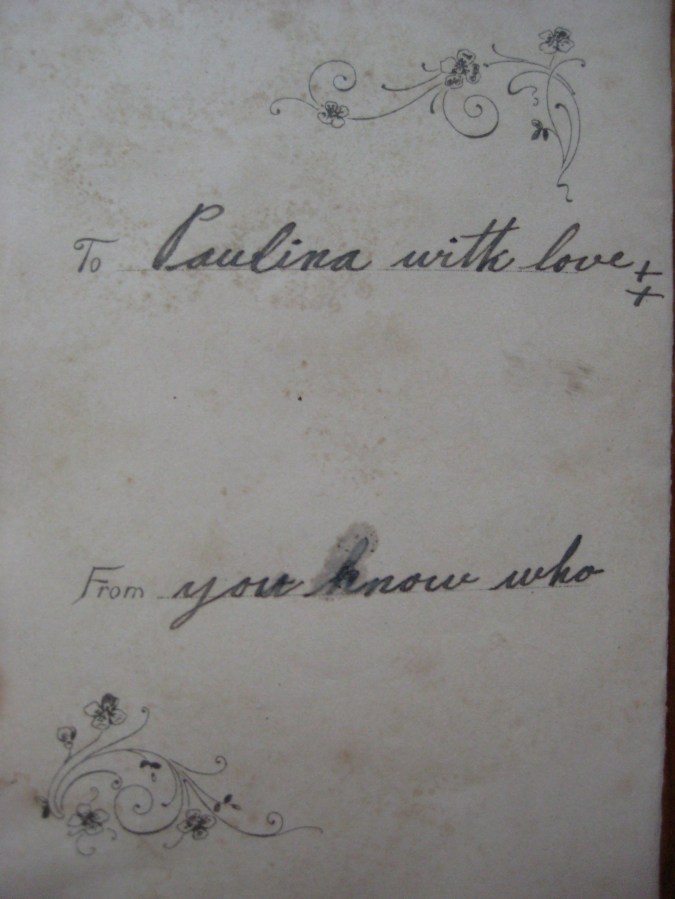 To Paulina with love ++
From you know who